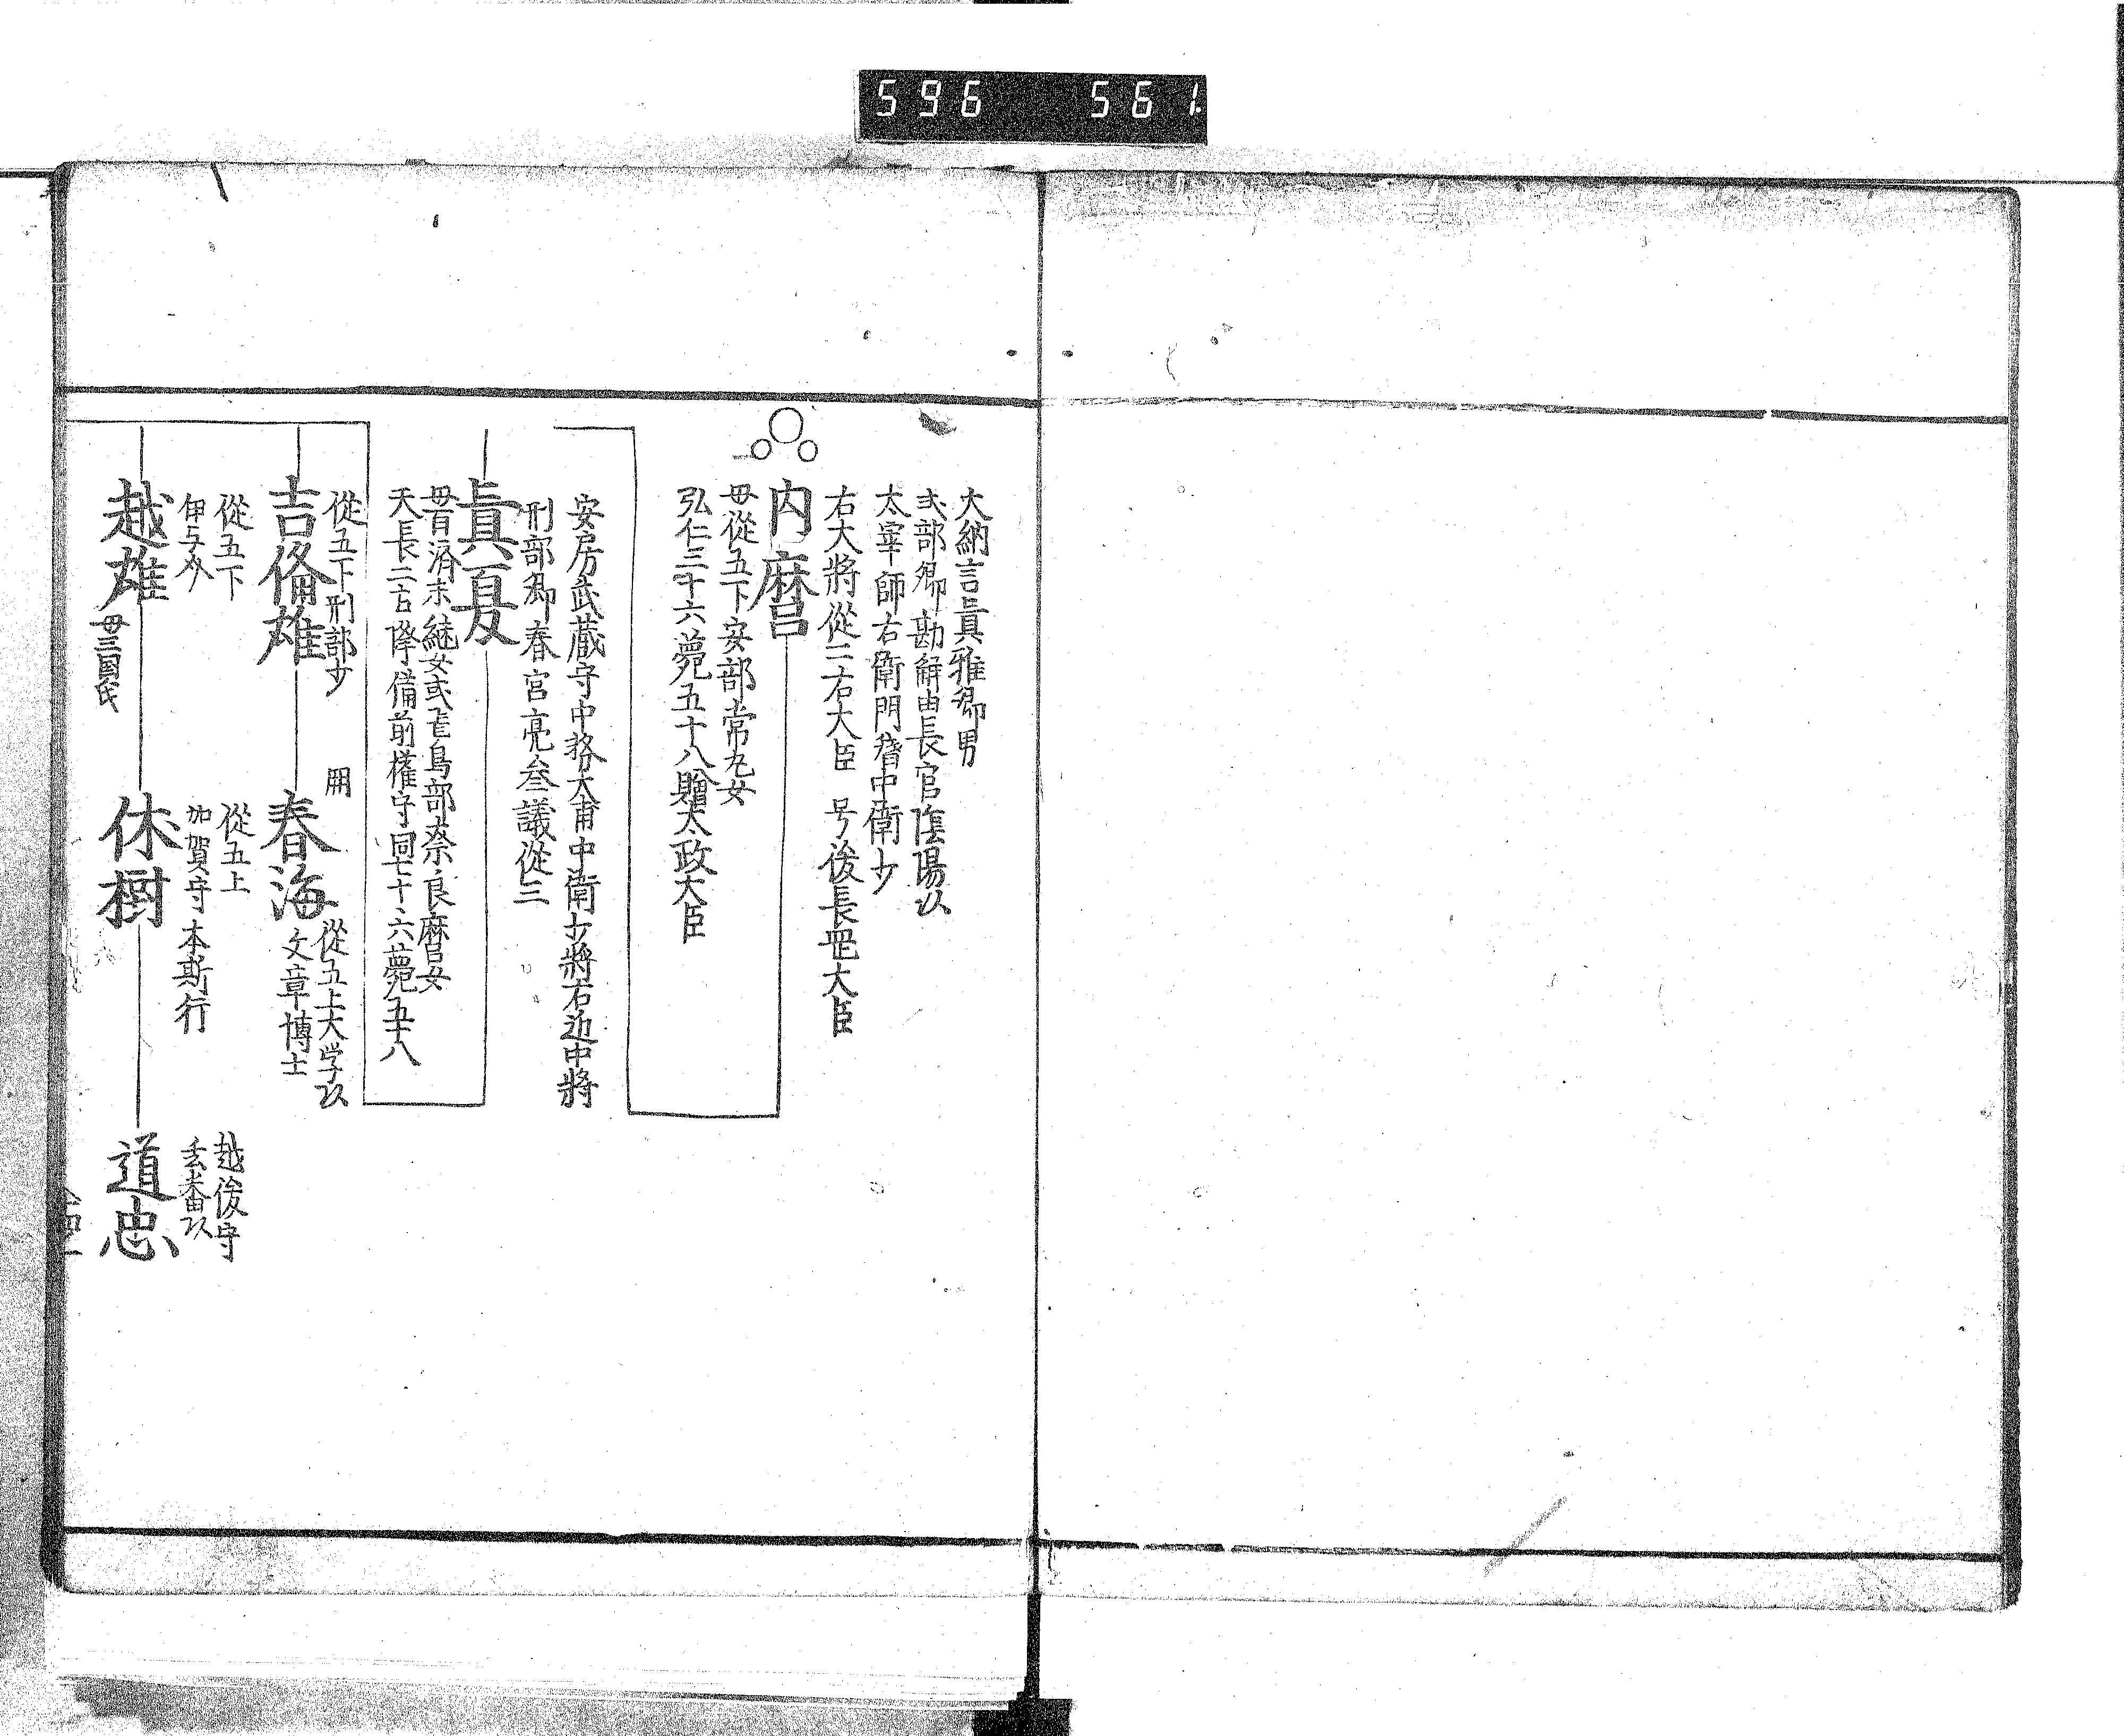 596 561
大納言眞雅卿男
式部卿勘解由長官陰陽以
太宰師右衛門督中衛少
右大將從二右大臣 号後長罡大臣
内麿
母從五下安部常丸女
弘仁三十六薨五十八贈太政大臣
安房武蔵守中務大甫中衛少將右近中將
刑部卿春宮亮叄議從三
眞夏
母百済末継女或飛鳥部奈良麿女
天長二吉降備前權守同七十六薨五十八
從五下刑部少
吉備雄
開
春海
從五上大学以
文章博士
從五下
伊与介
越雄
母三国氏
從五上
加賀守本斯行
休樹
越後守
玄番以
道忠